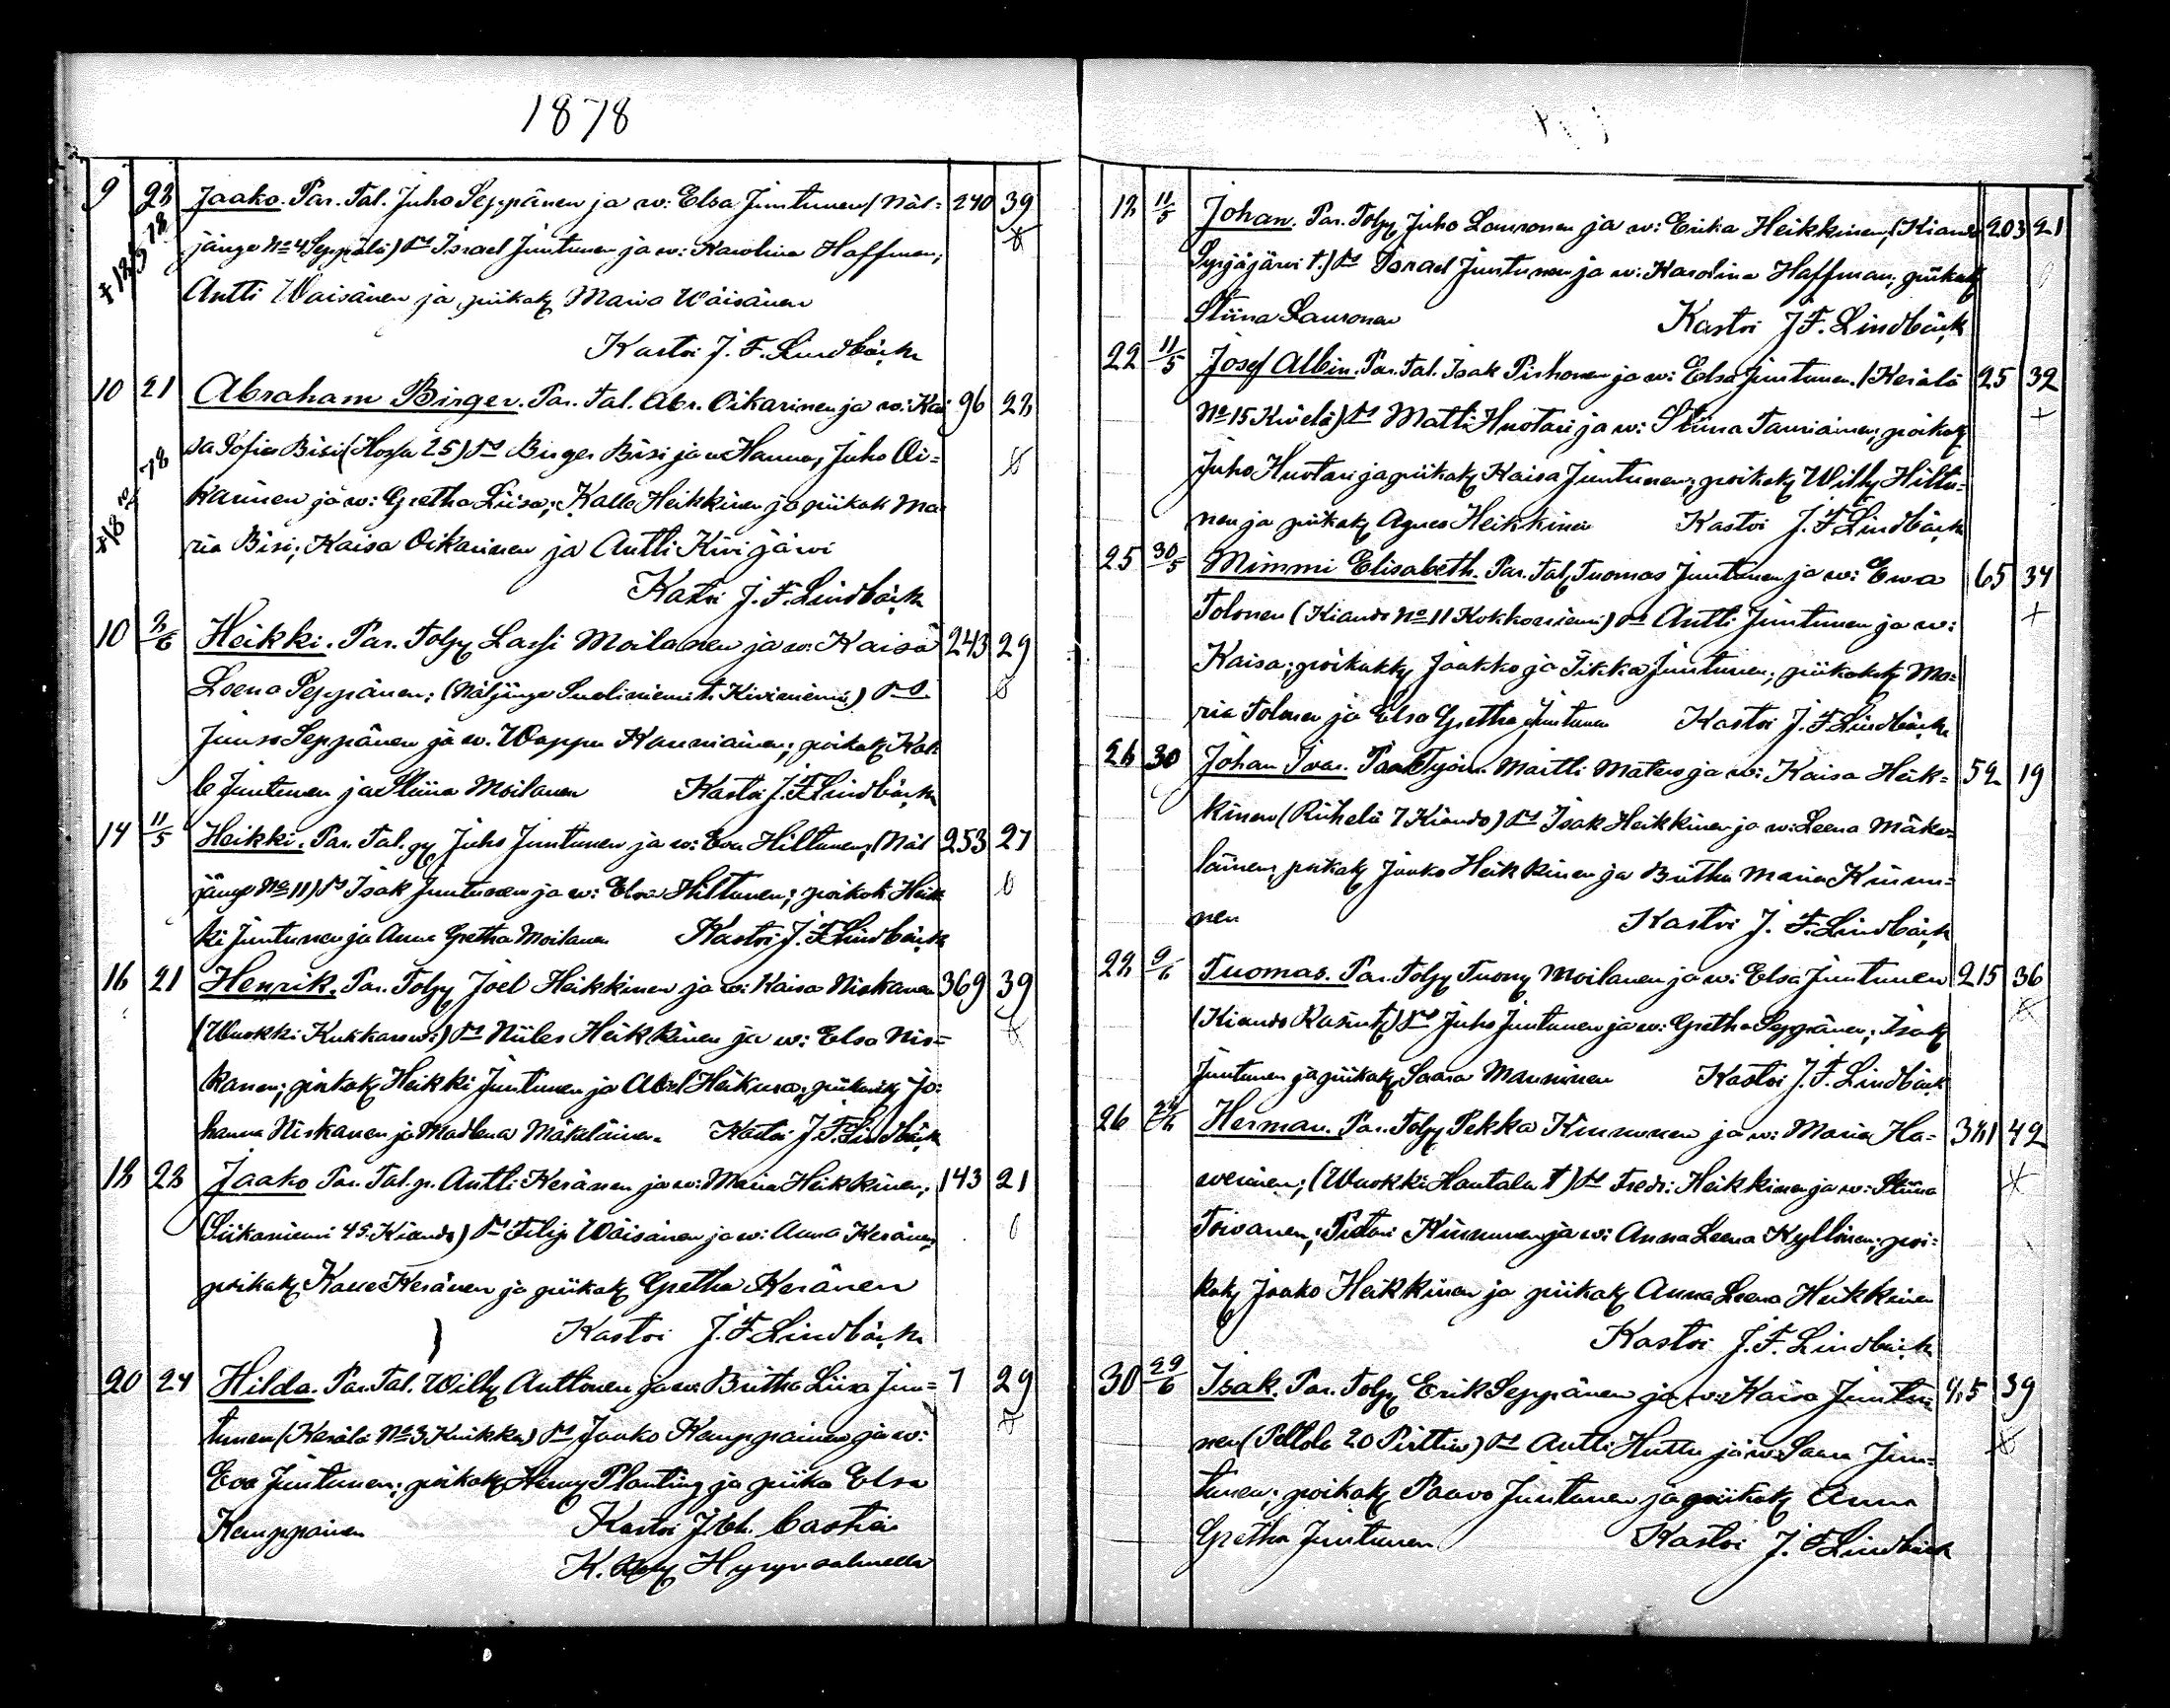 1878
9 23 Jaako. Par. Tal. Juho Seppänen ja w: Elsa Juntunen (Näl= 240 39
jänge No 4 Seppälä) Israel Juntunen ja w: Karolina Haffman;
Antti Waisänen ja piikak Maria Wäisänen
Kastoi J. F. Lindbäck
10 21 Abraham Birger. Par. Tal. Abr. Oikarinen ja w: Kai 96 28
sa Sofia Bisi (Hossa 25) Birger Bisi ja w Hanna, Juho Oi=
karinen ja w: Gretha Liisa; Kalle Heikkinen ja piikak Ma
ria Bisi; Kaisa Oikarinen ja Antti Kivijärvi
Kastoi J. F. Lindbäck
10 Heikki. Par. Tolp Lassi Moilanen ja w: Kaisa 243 29
Leena Seppänen; (Näljänge Kiviniemi)
Juuso Seppänen ja w. Wappu Kauniainen; poikak Kal
le Juntunen ja Stiina Moilanen Kastoi J. F. Lindbäck
14 11/5 Heikki. Par. Tal. Juho Juntunen ja w: Eva Hiltunen; (Näl 253 27
jänge No 11) Isak Juntunen ja w: Elsa Hiltunen; poikak Heik
ki Juntunen ja Anna Gretha Moilanen Kastoi J. F. Lindbäck
16 21 Henrik. Par. Tolp Joel Heikkinen ja w: Kaisa Niskanen 369 39
(Wuokki ) Niiles Heikkinen ja w: Elsa Nis=
kanen; poikak Heikki Juntunen ja Abel piikak Jo=
hanna Niskanen ja Madlena Mäkeläinen. Kastoi J. F. Lindbäck
18 28 Jaako Par. Tal. p. Antti Keränen ja w: Maria Heikkinen; 143 21
(Siikaniemi 45 Kiando) Filip Wäisänen ja w: Anna Keränen;
poikak Kalle Keränen ja piikak Gretha Keränen
Kastoi J. F. Lindbäck
20 24 Hilda. Par. Tal. Wilh Anttonen ja w: Britha Liisa Jun= 7 29
tunen (Kerälä No 3 Kuikka) Jaako Kemppainen ja w:
Eva Juntunen; poikak Henry Planting ja piika Elsa
Kemppainen Kastoi Castrén
K. Hyrynsalmella
18 11/5 Johan. Par. Tolp Juho Lauronen ja w: Erika Heikkinen, (Kiando 203 21
Syrjäjärvi t.) Israel Juntunen ja w: Karolina Haffman; piikak
Stiina Lauronen Kastoi J. F. Lindbäck
22 11/5 Josef Albin. Par. Tal. Isak Pirhonen ja w: Elsa Juntunen. (Kerälä 25 32
No 15 Kivelä) Matti Huotari ja w: Stiina Tauriainen; poikak
Juho Huotari ja piikak Kaisa Juntunen; poikak Wilh Hiltu=
nen ja piikak Agnes Heikkinen Kastoi J. F. Lindbäck
25 30/5 Mimmi Elisabeth. Par. Tal, Tuomas Juntunen ja w: Ewa 65 34
Tolonen (Kiando No 11 Kokkoniemi) Antti Juntunen ja w:
Kaisa; poikakk Jaakko ja Juntunen; piikak Ma=
ria Tolonen ja Elsa Gretha Juntunen Kastoi J. F. Lindbäck
26 30 Johan Ivar. Par. Työm. Martti Matero ja w: Kaisa Heik= 52 19
kinen (Riihelä 7 Kiando) Isak Heikkinen ja w: Leena Mäke=
läinen; poikak Jaako Heikkinen ja Britha Maria Kinnu=
nen Kastoi J. F. Lindbäck
28 9/6 Tuomas. Par. Tolp Tuom Moilanen ja w: Elsa Juntunen 215 36
(Kiando ) Juho Juntunen ja w: Gretha Seppänen; Isak
Juntunen ja piikak Saara Manninen Kastoi J. F. Lindbäck
26 Herman. Par. Tolp Pekka Kinnunen ja w: Maria Ha= 381 42
werinen; (Wuokki Hautala t) Fredr: Heikkinen ja w: Stiina
Toivanen; Petari Kinnunen ja w: Anna Leena Kyllönen; poi=
kak Jaako Heikkinen ja piikak Anna Leena Heikkinen
Kastoi J. F. Lindbäck
30 29/6 Isak. Par. Tolp Erik Seppänen ja w: Kaisa Juntu= 39
nen (Peltola 20 Pirttiw) Antti Huttu ja w: Saara Jun=
tunen; poikak Paavo Juntunen ja piikak Anna
Gretha Juntunen Kastoi J. F. Lindbäck